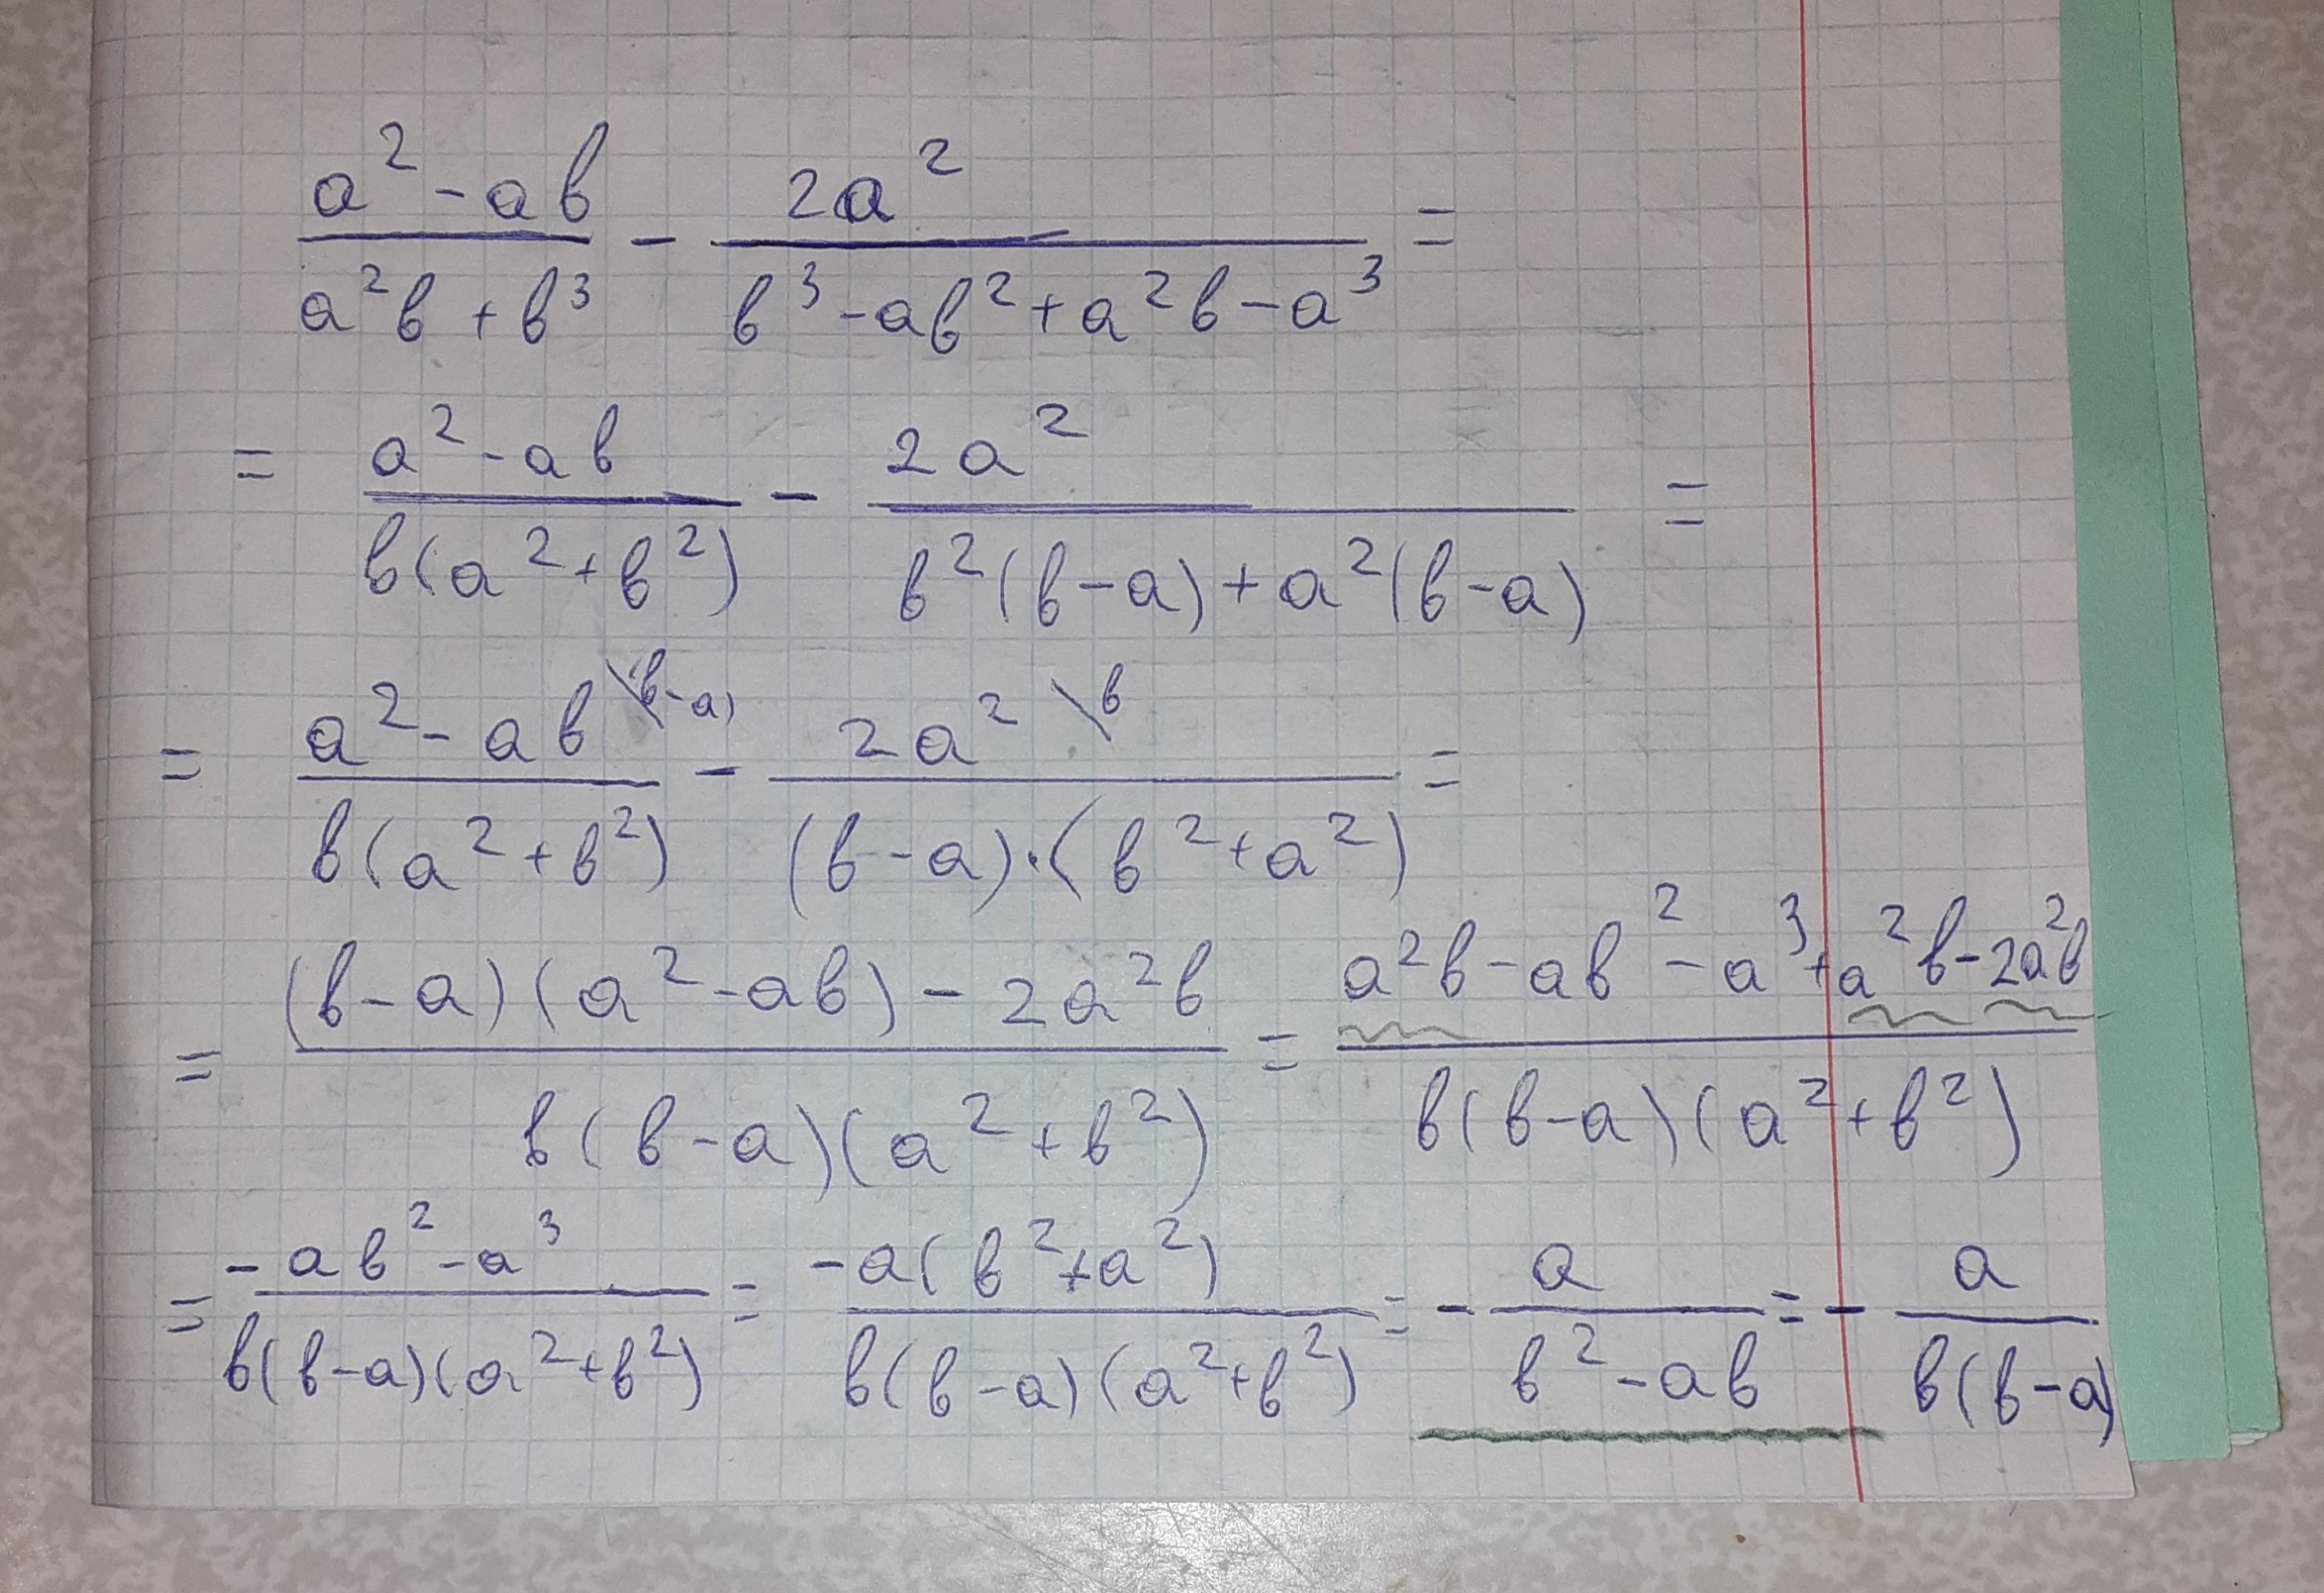 (a² - ab)/(a²b + b³) - 2a²/(b³ - ab² + a²b - a³) =
= (a² - ab)/(b(a² + b²)) - 2a²/(b²(b - a) + a²(b - a)) =
= (a² - ab)\(b-a)/(b(a² + b²)) - 2a²\b/((b - a)·(b² + a²)) =
= ((b - a)(a² - ab) - 2a²b)/(b(b - a)(a² + b²)) = (a²b - ab² - a³ + a²b - 2a²b)/(b(b - a)(a² + b²))
= (-ab² - a³)/(b(b - a)(a² + b²)) = -a(b² + a²)/(b(b - a)(a² + b²)) = - a/(b² - ab) = - a/(b(b - a))